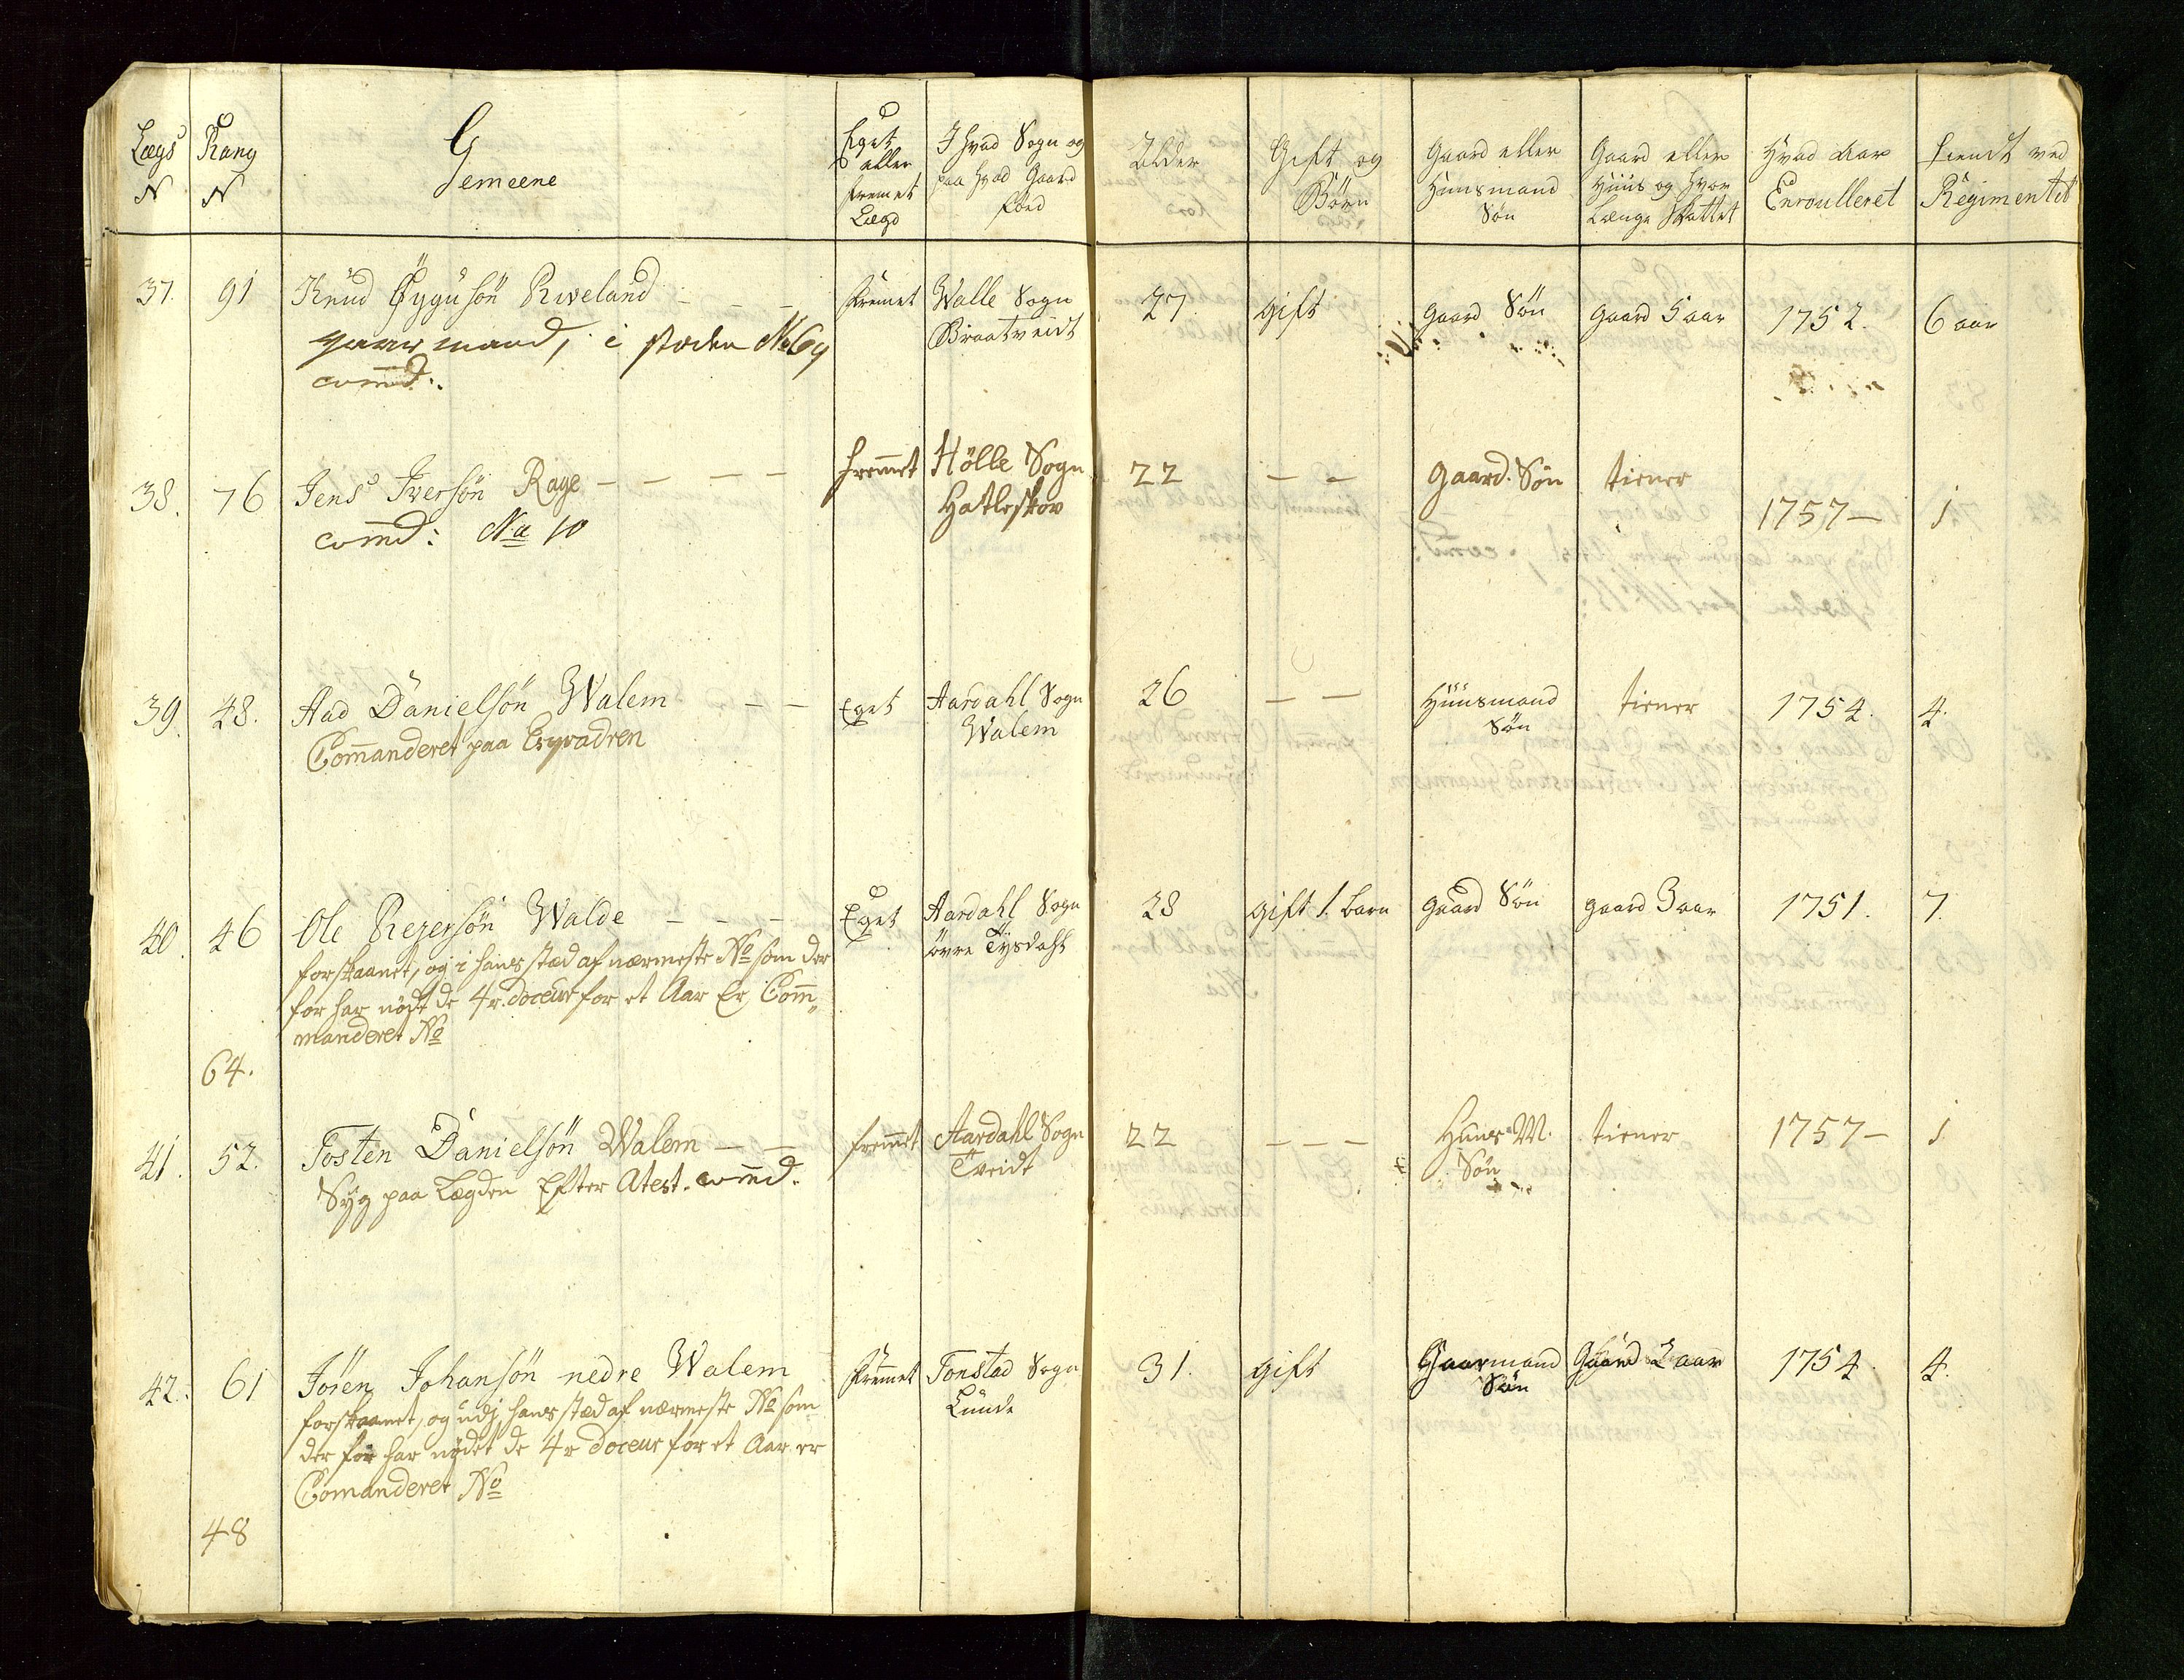 Lægs N | Rang N | Gemeene | Eget eller fremet Lægd | I hvad Sogn og paa hvad Gaard fød | Alder | Gift og Börn | Gaard eller Huusmand Sön | Gaard eller Huus og hvor Længe Skattet | Hvad Aar Enroulleret | tient ved Regimentet
37. | 91 | Knud Öygusön Riveland - - - | fremet | Walle Sogn | 27 | gift | gaard Sön | gaard 5 aar | 1752. | 6 aar
gaarmand, i stæden No 69 | Braatveidt
comd:
38. | 76 | Jens Iversön Rage - - - - | fremmet | Hölle Sogn | 22 | - - | gaard Sön | tiener | 1757 - | 1
comd: No 10 | Hatleskov
39. | 48. | Aad Danielsön Walem - - | Eget | Aardahl Sogn | 26 | - - | Huusmand | tiener | 1754. | 4.
Commanderet paa Esqvadren | Walem | Sön
40. | 46 | Ole Regersön Walde - - - | Eget | Aardahl Sogn | 28 | gift 1. barn | gaard Sön | gaard 3 aar | 1751. | 7.
forskaanet, og i hans stæd af nærmeste No som der | övre Tysdahl
for har nödt de 4 r doceur for et Aar Er Comm„
manderet No
64.
41. | 52. | Tosten Danielsön Walem - - | fremmet | Aardahl Sogn | 22 | - - - | Huus M. | tiener | 1757 - | 1
Syg paa Lægden Efter Atest. comd. | Tveidt | Sön
42. | 61 | Jören Johansön nedre Walem | fremmet | Tonstad Sogn | 31. | gift | Gaarmand | Gaard 2 aar | 1754. | 4.
forskaanet, og udj hans stæd af nærmeste No som | Lunde | Sön
der for har nydet de 4 r doceur for et Aar er
Comanderet No
48